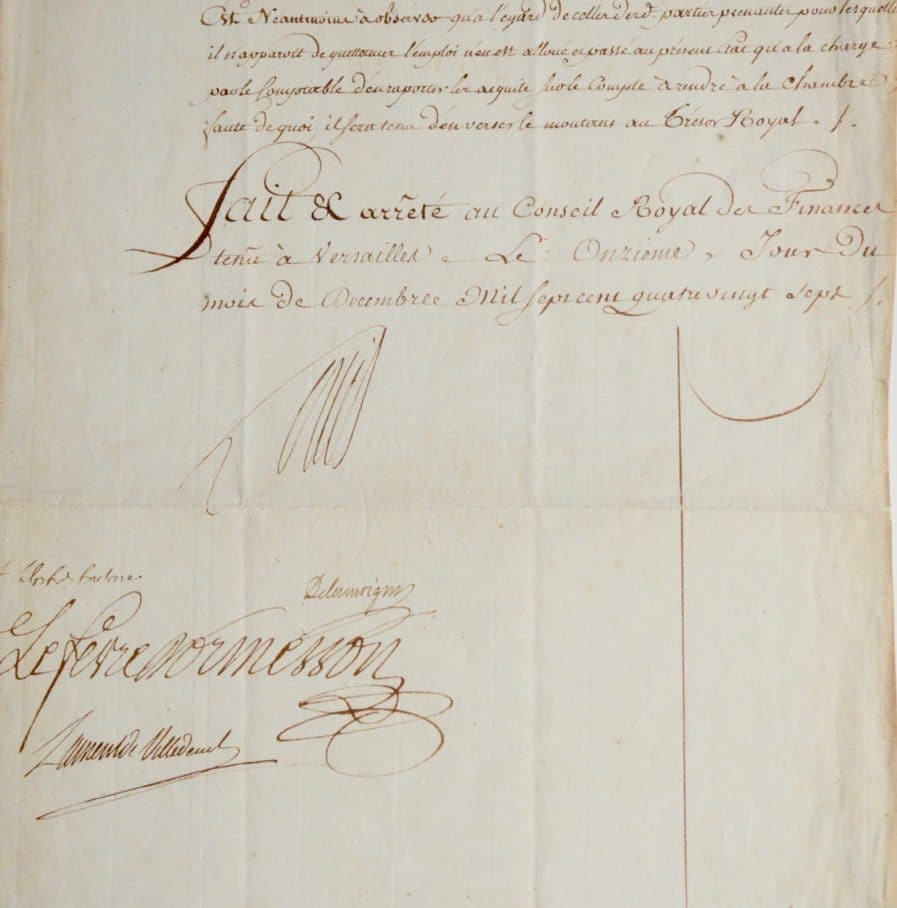 Est Néantmoins à observer qu'à l'égard de celles desd. parties prenantes pour lesquelles
il n'apparoit de quittances l'emploi n'en est alloué et passé au présent Etat qu'à la charge
par le Comptable d'en raporter les acquits sur le Compte à rendre à la Chambre
faute de quoi, il sera tenu d'en verser le montant au Trésor Royal. /.
Fait & arrêté au Conseil Royal des Finances
tenû à Versailles Le Onzieme Jour Du
mois De Decembre Mil sept cent quatre vingt sept /.
Delamoignon
Lefevre dormesson
Laurent de Villedeuil